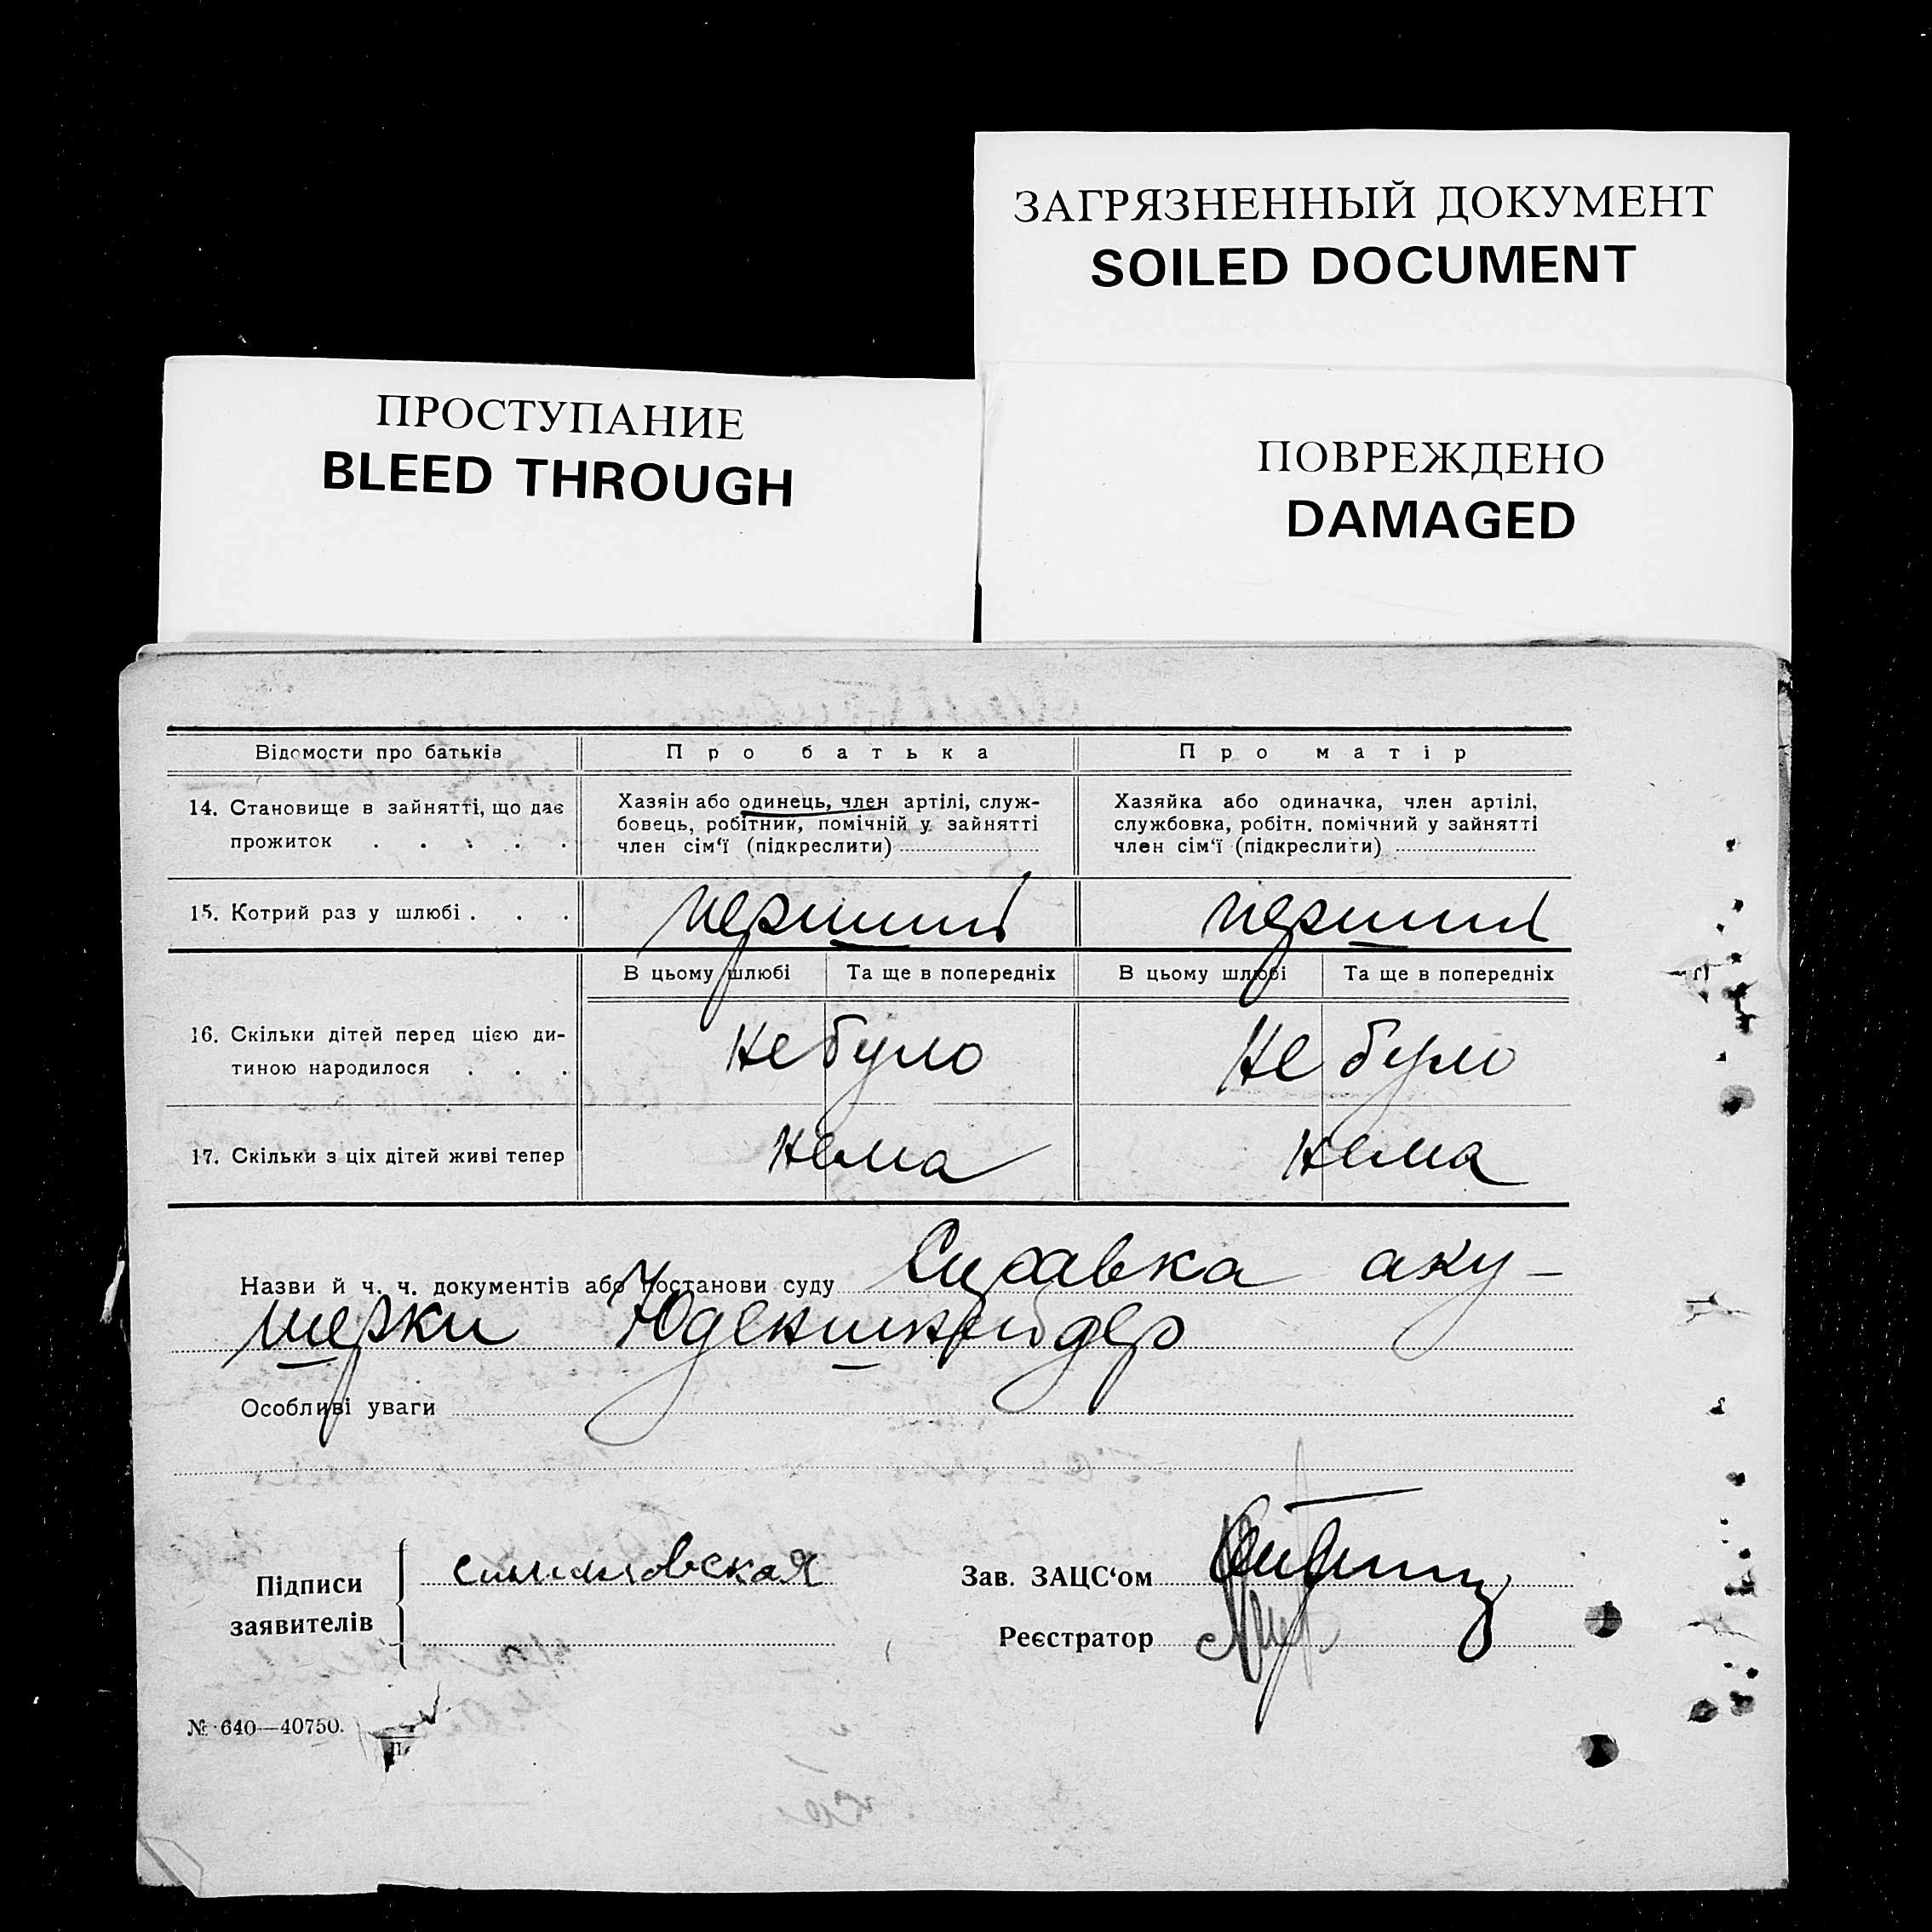 ЗАГРЯЗНЕННЫЙ ДОКУМЕНТ
SOILED DOCUMENT
ПРОСТУПАНИЕ
BLEED THROUGH
ПОВРЕЖДЕНО
DAMAGED
Відомости про батьків
Про батька
Про матір
14. Становище в зайнятті, що дає
прожиток . . . . .
Хазяін або одинець, член артілі, служ-
бовець, робітник, помічній у зайнятті
член сім‘ї (підкреслити)
Хазяйка або одиначка, член артілі,
службовка, робітн. помічний у зайнятті
член сім‘ї (підкреслити)
15. Котрий раз у шлюбі . . .
перший
перший
В цьому шлюбі
Та ще в попередніх
В цьому шлюбі
Та ще в попередніх
16. Скільки дітей перед цією ди-
тиною народилося . . .
не було
не було
17. Скільки з ціх дітей живі тепер
нема
нема
Назви й ч. ч. документів або постанови суду Справка аку-
шерки Юденшнейдер
Особливі уваги
Підписи
заявителів
Зав. ЗАЦС‘ом
Реєстратор
№ 640—40750.